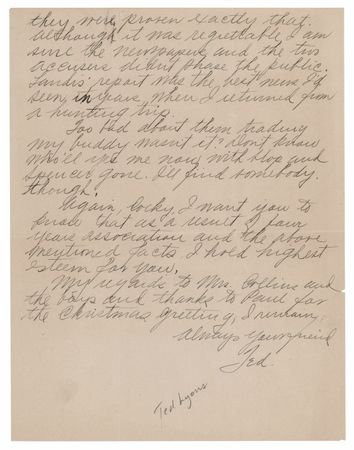 they were proven exactly that.
Although it was regrettable I am
sure the newspapers and the two
accusers didn't phase the public.
Landis' report was the best news I'd
seen in years when I returned from
a hunting trip.
Too bad about them trading
my buddy wasn't it? Don't know
who'll me now with and
Spencer gone. I'll find somebody
though.
Again, Corky, I want you to
know that as a result of four
years association and the above
mentioned facts I hold highest
esteem for you.
My regards to Mrs. Collins and
the boys and thanks to Paul for
the Christmas greeting, I remain:
Always Your friend
Ted.
Ted Lyons